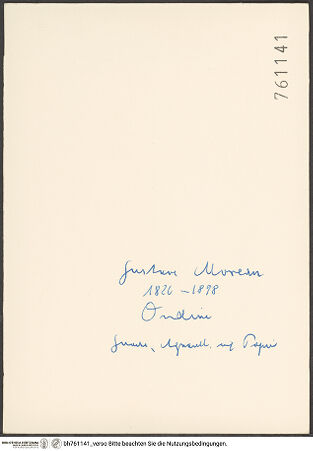 761141
Gustave Moreau
1826 – 1898
Ondine
Aquarell. auf Papier
bh761141_verso Bitte beachten Sie die Nutzungsbedingungen.